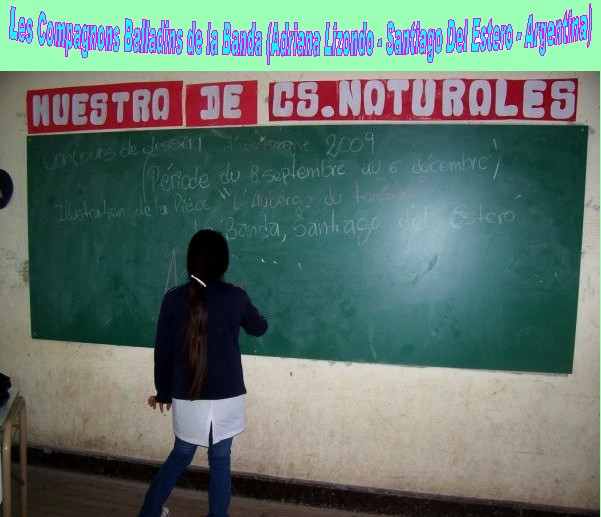 Les Compagnons Balladins de la Banda (Adriana Lizondo - Santiago Del Estero - Argentina)
MUESTRA DE CS.NATURALES
concours de dessin d'automne 2009
(Période du 8 septembre au 6 décembre)
Illustration de la Pièce "L'Auberge du
Banda, Santiago del Estero